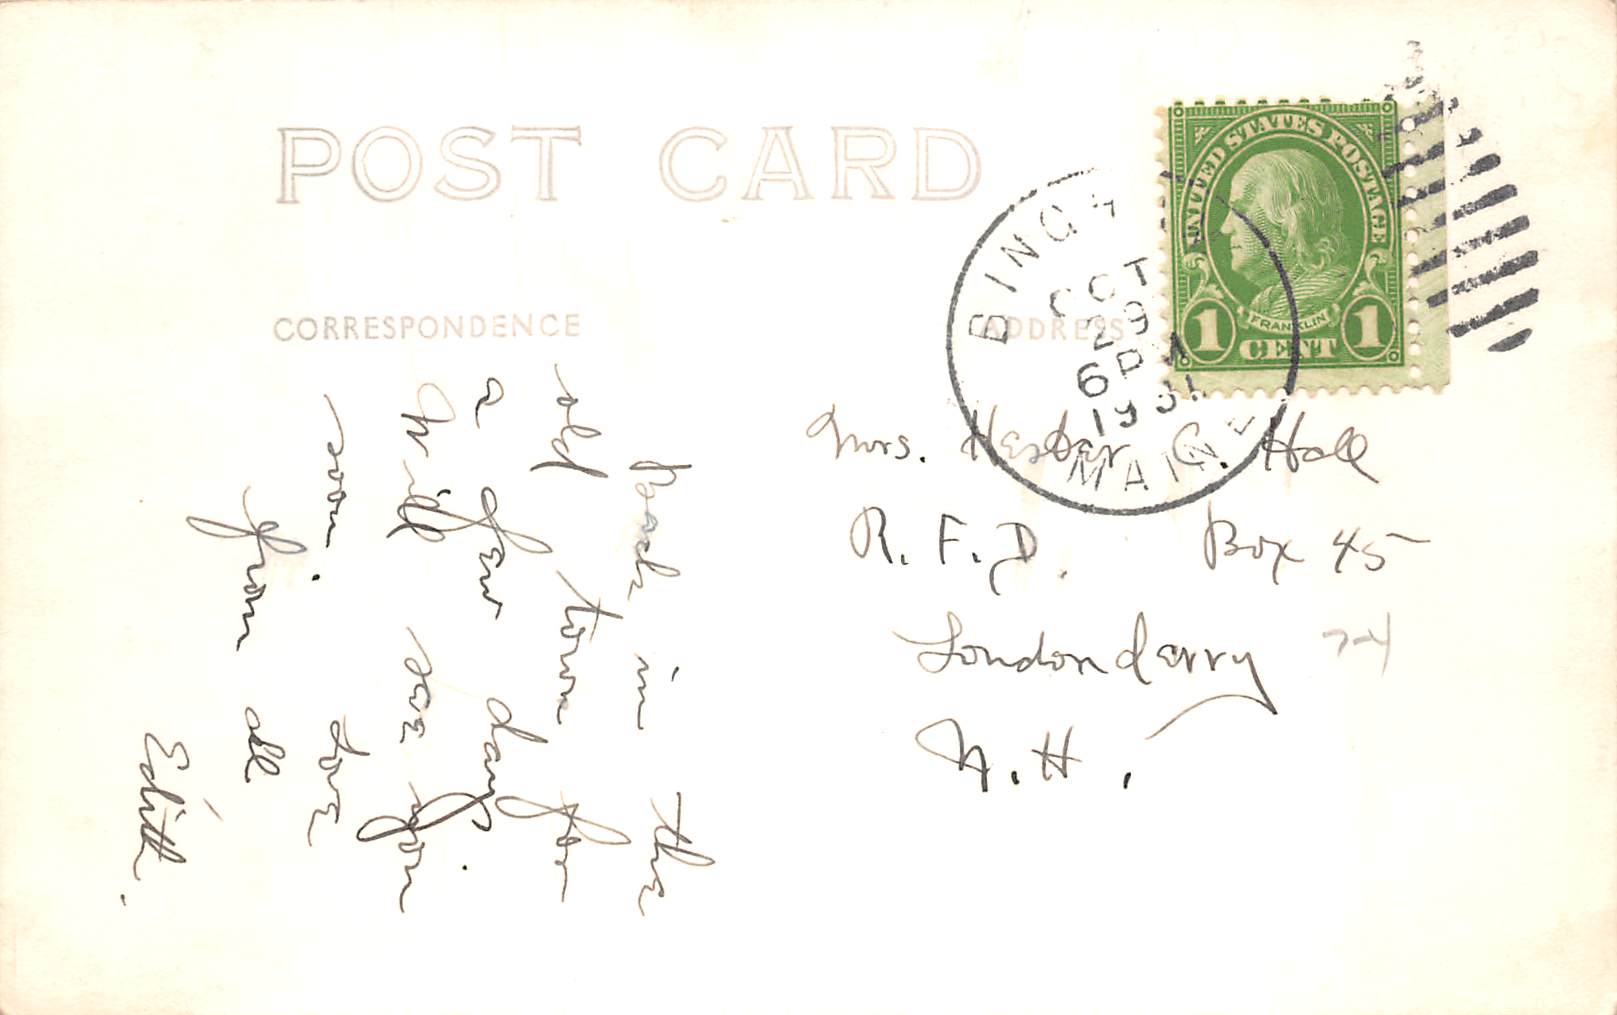 POST CARD
CORRESPONDENCE
ADDRESS
UNITED STATES POSTAGE
FRANKLIN
1 CENT 1
BINGH
OCT
29
6 PM
1931
MAINE
Back in the
old town for
a few days.
Will see you
soon. Love
from all
Edith.
Mrs. Hester C. Hall
R.F.D. Box 45
Londonderry
N.H.